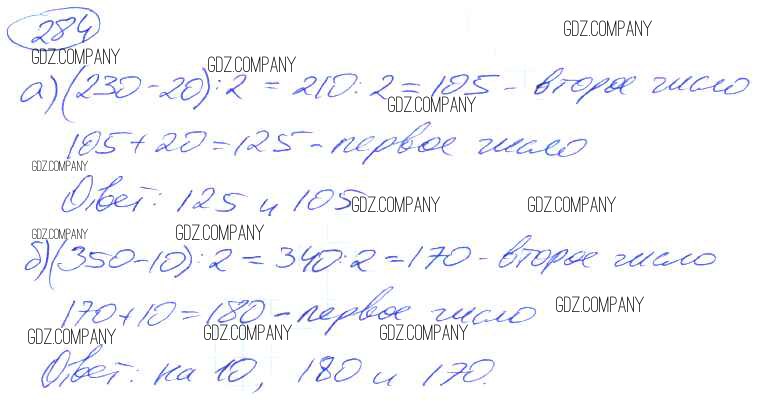 284
GDZ.COMPANY
GDZ.COMPANY GDZ.COMPANY
а) (230-20):2 = 210:2 = 105 - второе число
GDZ.COMPANY
105+20=125 - первое число
GDZ.COMPANY
Ответ: 125 и 105
GDZ.COMPANY GDZ.COMPANY
GDZ.COMPANY GDZ.COMPANY
б) (350-10):2 = 340:2 = 170 - второе число
GDZ.COMPANY
170+10=180 - первое число
GDZ.COMPANY GDZ.COMPANY GDZ.COMPANY
Ответ: на 10, 180 и 170.